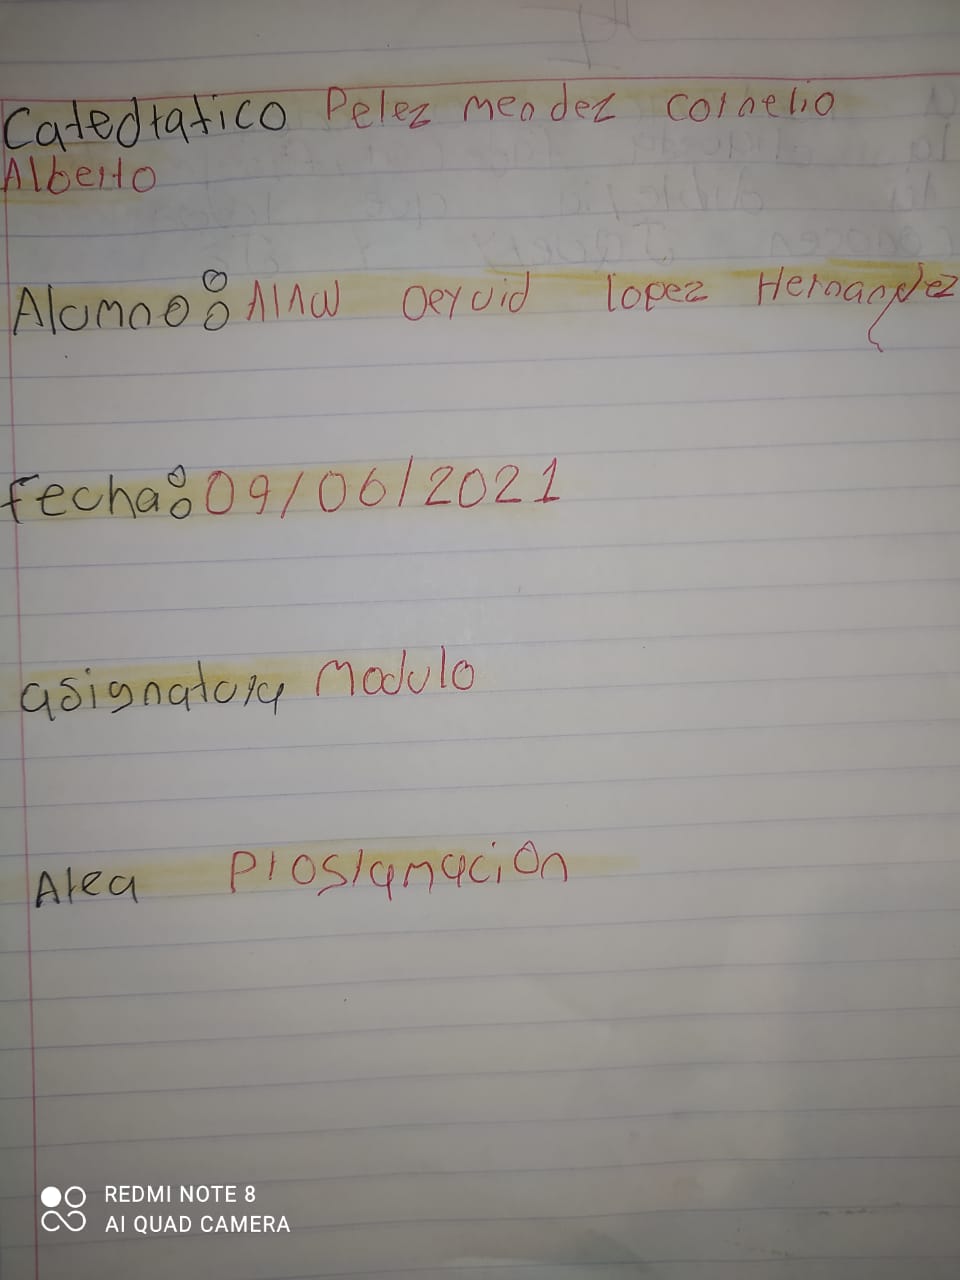 Catedratico Perez mendez cornelio
Alberto
Alumno: Alan Deyvid lopez Hernandez
fecha: 09/06/2021
asignatura Modulo
Area Programacion
REDMI NOTE 8
AI QUAD CAMERA